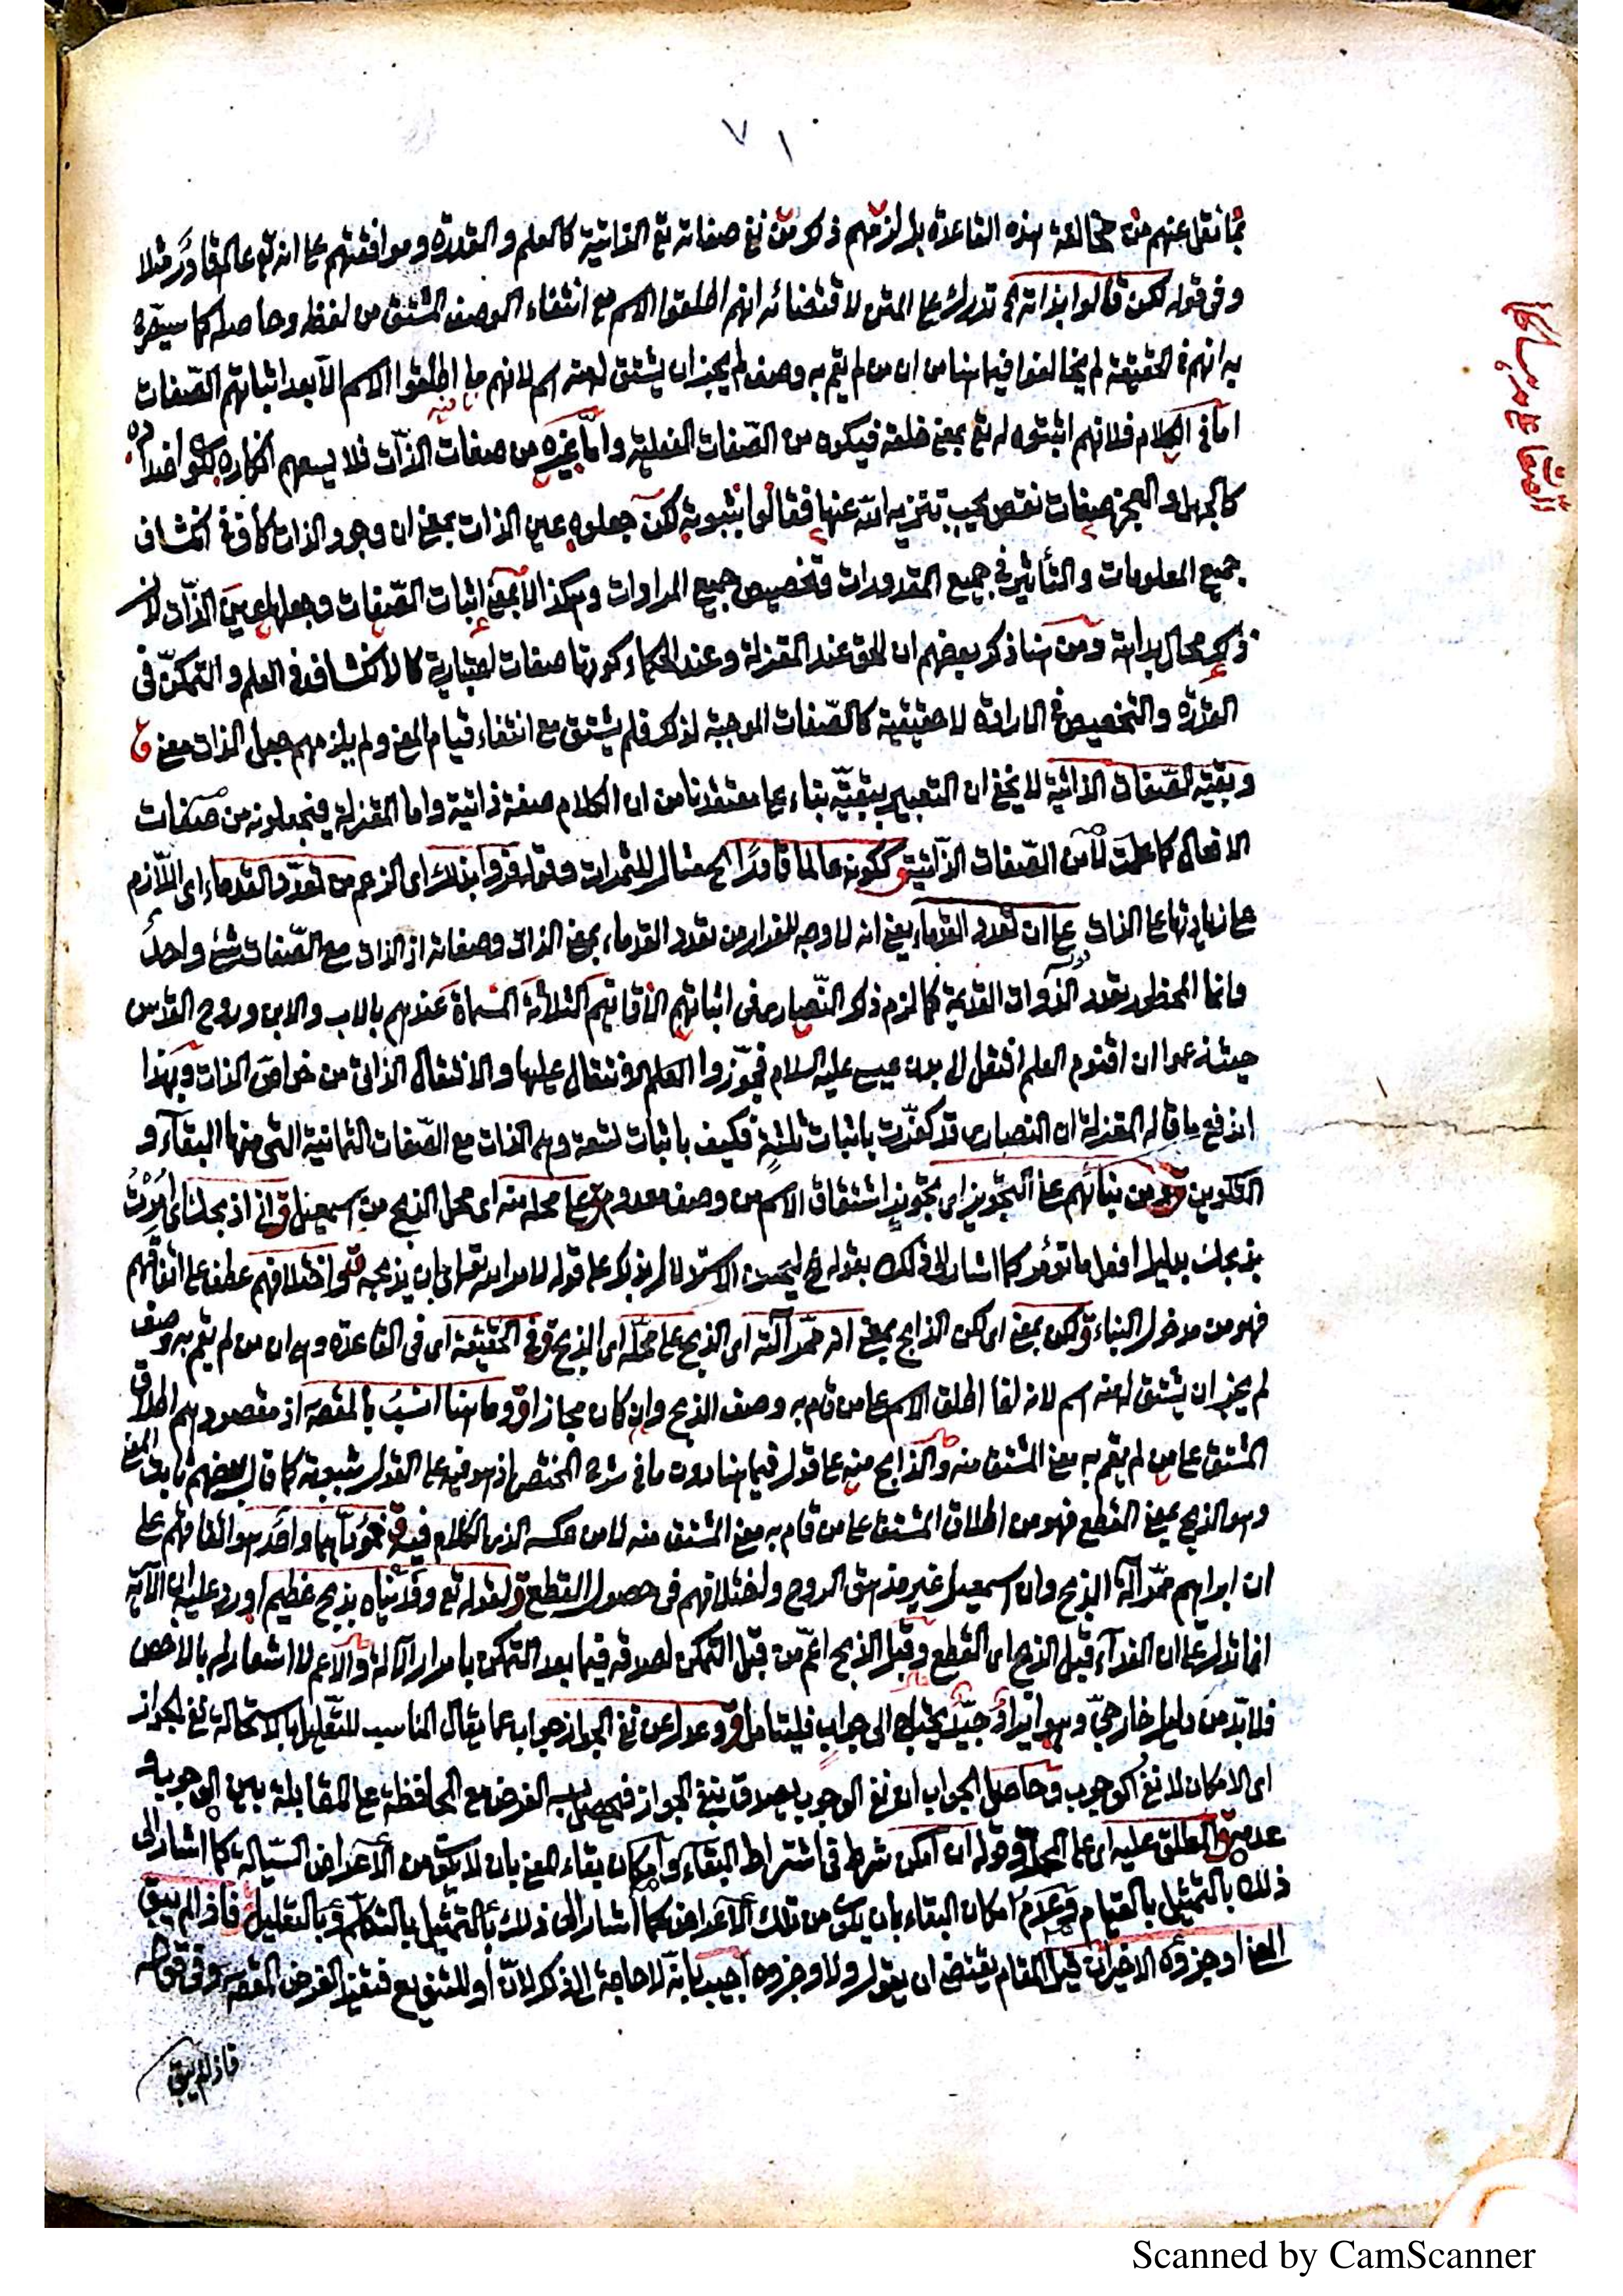 ٧١
مما نقل عنهم من مخالفة هذه القاعدة بل لزمهم ذكر من نفي صفاته تع الذاتية كالعلم و القدرة وموافقتهم على انه تع عالم قادر مثلا
وفي قوله لكن قالوا بذاته الخ تدرك على المتن لاقتضائه انهم اطلقوا الاسم مع انتفاء الوصف المشتق من لفظه وحاصله كما سيصرح
به انهم في الحقيقة لم يخالفوا فيما هنا من ان من لم يقم به وصف لم يجز ان يشتق له منه اسم لانهم ما اطلقوا الاسم الا بعد اثباتهم الصفات
اما في الكلام فلانهم اثبتوه له تع بمعنى خلقه فيكون من الصفات الفعلية واما غيره من صفات الذات فلا يسعهم انكاره لكون اضداده
كالجهل و العجز صفات نقص يجب تنزيه الله عنها فقالوا بثبوته لكن جعلوه عين الذات بمعنى ان وجود الذات كاف في انكشاف
جميع المعلومات و التأثير في جميع المقدورات وتخصيص جميع المرادات وهكذا لا بمعنى اثبات الصفات وجعلها عين الذات لان
ذلك محال بداهة ومن هنا ذكر بعضهم ان الحق عند المعتزلة وعند الحكماء كونها صفات اعتبارية كالانكشاف في العلم و التمكن في
القدرة و التخصيص في الارادة لا حقيقية كالصفات الموجبة لذلك فلم يشتق مع انتفاء قيام المعنى ولم يلزمهم جعل الذات معنى ق
وبقية الصفات الذاتية لا يخفى ان التعبير ببقية بناء على معتقدنا من ان الكلام صفة ذاتية واما المعتزلة فيجعلونه من صفات
الافعال كما علمت لا من الصفات الذاتية ق ككونه عالما قادرا الخ مثال للثمرات وقوله فروا بذلك اى الزعم من تعدد القدماء اى اللازم
على زيادتها على الذات على ان تعدد القدماء يعني انه لا وجه للفرار من تعدد القدماء بمعنى الذات وصفاته اذ الذات مع الصفات شيء واحد
وانما المحظور تعدد الذوات القديمة كما لزم ذلك النصارى في اثباتهم الاقانيم الثلاثة المسماة عندهم بالاب والابن وروح القدس
حيث زعموا ان اقنوم العلم انتقل الى بدن عيسى عليه السلام فجوزوا العلم الانتقال عليها و الانتقال الذاتي من خواص الذات وبهذا
اندفع ما قاله المعتزلة ان النصارى قد كفرت باثبات ثلثة فكيف باثبات تسعة وهم الذات مع الصفات الثمانية التي منها البقاء و
التكوين ق ومن بنائهم على التجويز اى تجويز اشتقاق الاسم من وصف معدوم ق على محله منه اى محل الذبح من اسمعيل ق اني اذبحك اى امرت
بذبحك بدليل افعل ما تؤمر كما اشار الى ذلك بقوله
فهو من مدخول البناء ق لكن بمعنى اى لكن الذابح بمعنى انه ممر آلته اى الذبح على محله اى الذبح ق وفي الحقيقة اى في القاعدة وهى ان من لم يقم به وصف
لم يجز ان يشتق له منه اسم لانه انما اطلق الاسم على من قام به وصف الذبح وان كان مجازا ق وما هنا انسب بالمقصد اذ مقصودهم اطلاق
المشتق على من لم يقم به معنى المشتق منه و الذابح منه على قوله فيما هنا دون ما في شرح المختصر اذ هو فيه على القول بثبوته كما قال بعضهم ثابت المعنى
وهو الذبح بمعنى القطع فهو من اطلاق المشتق على من قام به معنى المشتق منه لا من عكسه الذي الكلام فيه ق فمؤداهما واحد هو اتفاقهم على
ان ابراهيم ممر آلة الذبح وان اسمعيل غير مزهق الروح واختلافهم في حصول القطع ق لقوله تع وفديناه بذبح عظيم اورد عليه ان الآية
انما تدل على ان الفداء قبل الذبح اى القطع وقبل الذبح اعم من قبل التمكن لصدقه فيما بعد التمكن بامرار الآلة و الاعم لا اشعار له بالاخص
فلا بد من دليل خارجي وهو ايراد جيد يحتاج الى جواب فليتأمل ق وعدل عن نفي الجواز جواب عما يقال المناسب للتعليل بالاستحالة نفي الجواز
اى الامكان لا نفي الوجوب وحاصل الجواب ان نفي الوجوب يصدق بنفي الجواز فيحصل به الغرض مع المحافظة على المقابلة بين الوجوب و
عدمه ق المطلق عليه اى على المحل ق وقوله ان امكن شرط في اشتراط البقاء و امكان بقاء المعنى بان لا يكون من الاعراض السيالة كما اشار الى
ذلك بالتمثيل بالقيام وعدم امكان البقاء بان يكون من تلك الاعراض كما اشار الى ذلك بالتمثيل بالتكلم و بالتعليل ق فاذا لم يبق
المعنى او جزؤه الاخير ان قيل المقام يقتضي ان يقول ولا جزؤه اجيب بانه لا حاجة الى ذكر لا لان او للتنويع فتفيد الغرض المقصود وفي قوله
فاذا لم يبق
Scanned by CamScanner